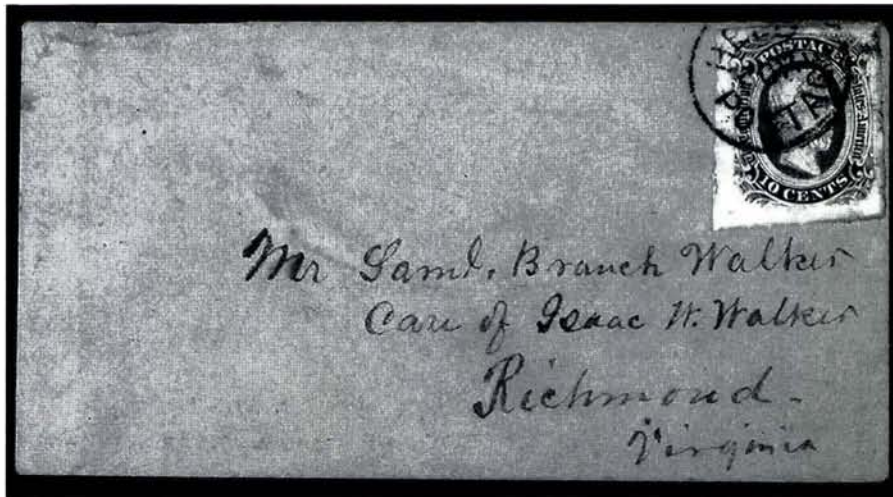 POSTAGE
10 CENTS
Mr Saml. Branch Walker
Care of Isaac W. Walker
Richmond -
Virginia